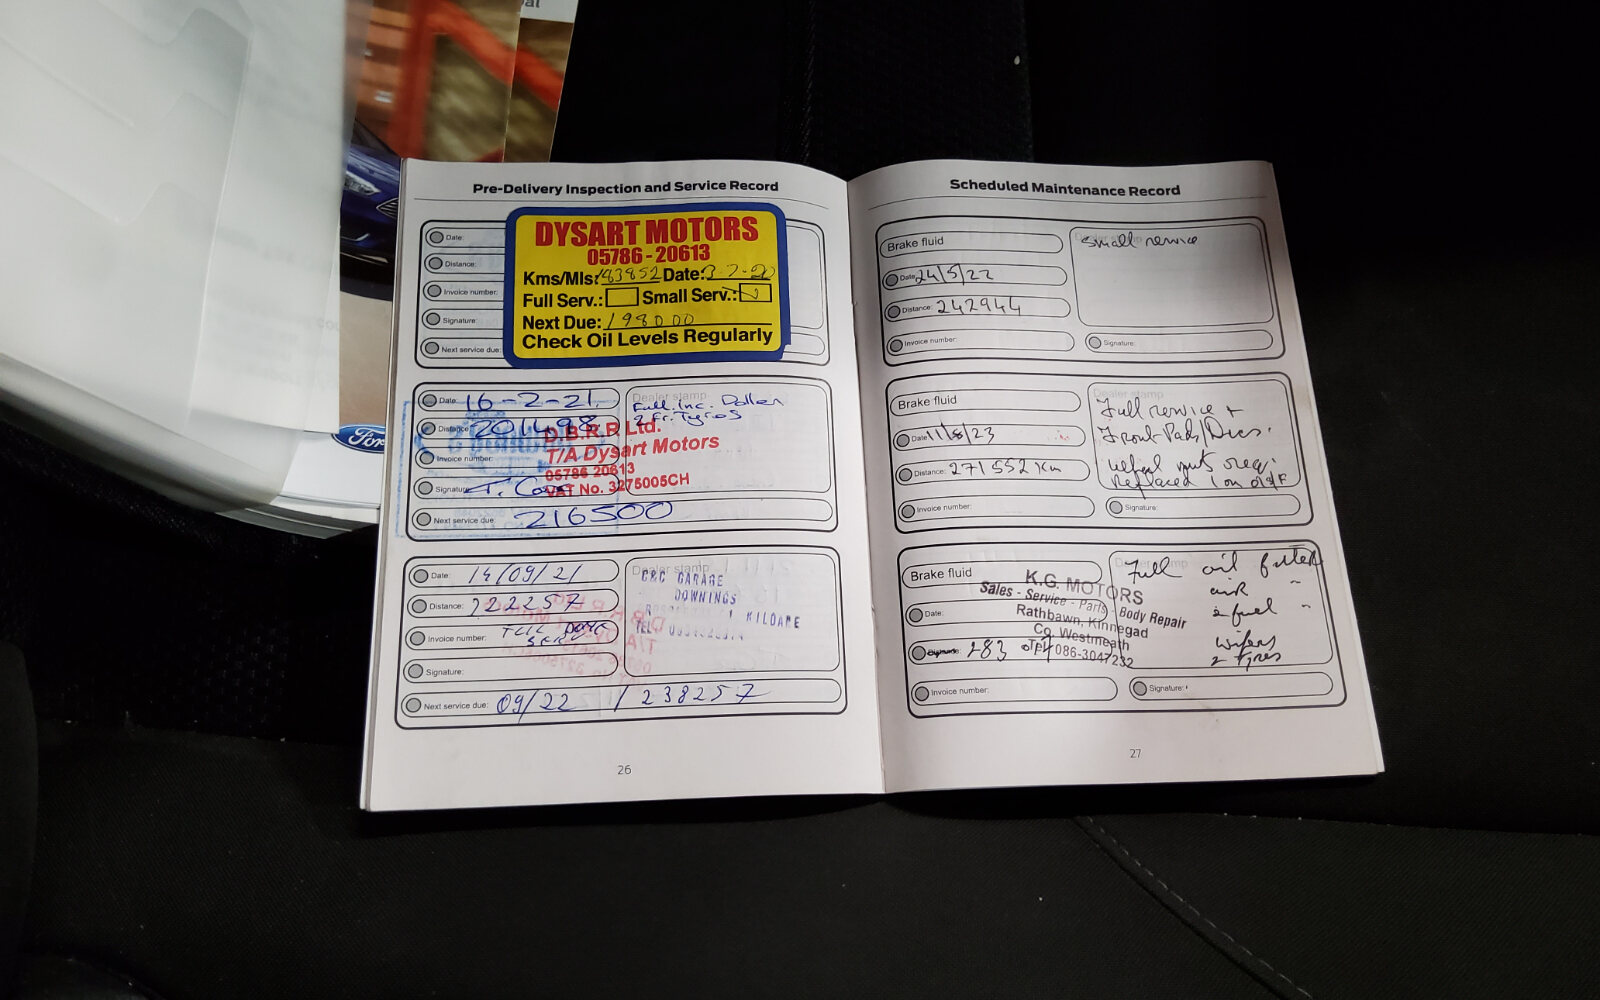 Pre-Delivery Inspection and Service Record
Date:
Distance:
Invoice number:
Signature:
Next service due:
DYSART MOTORS
05786-20613
Kms/Mls: 183852 Date: 3-7-20
Full Serv.: Small Serv.:
Next Due: 198000
Check Oil Levels Regularly
Date: 16-2-21
Distance: 201498
Invoice number:
Signature: T.
Next service due: 216500
Dealer stamp
Full. Inc. Pollen
2 Fr. Tyres
D.B.R.P. Ltd.
T/A Dysart Motors
05786 20613
VAT No. 3275005CH
Date: 14/09/21
Distance: 222257
Invoice number: FULL
Signature:
Next service due: 09/22 / 238257
Dealer stamp
C&C GARAGE
DOWNINGS
KILDARE
TEL
26
Scheduled Maintenance Record
Brake fluid
Date 24/5/22
Distance: 242944
Invoice number:
Small service
Signature:
Brake fluid
Date 11/8/23
Distance: 271552 Km
Invoice number:
Dealer stamp
Full service +
Front Pads/Discs.
wheel nuts req
Replaced 1 on
Signature:
Brake fluid
Date:
283
Invoice number:
K.G. MOTORS
Sales - Service - Parts - Body Repair
Rathbawn, Kinnegad
Co. Westmeath
Tel: 086-3047232
Full oil filter
air "
& fuel "
wipers
2 tyres
Signature:
27
Ford